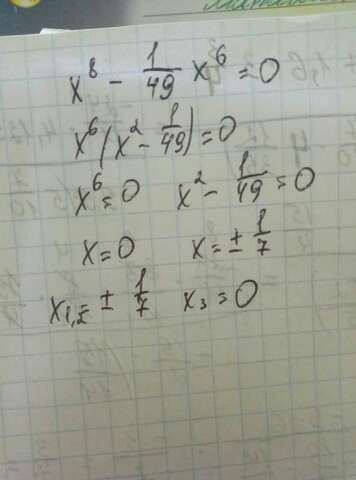 x⁸ - 1/49 x⁶ = 0
x⁶(x² - 1/49) = 0
x⁶ = 0 x² - 1/49 = 0
x = 0 x = ± 1/7
x₁,₂ = ± 1/7 x₃ = 0